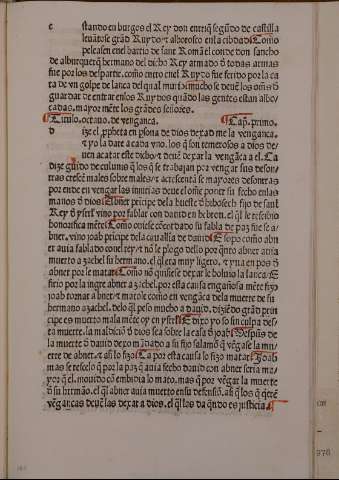 stando en burgos el Rey don enriq̃ segũdo de castilla
leuãtose grãd Ruydo τ alboroço en la cibdad Como
peleasen en el barrio de sant Romã el conde don sancho
de alburquerq̃ hermano del dicho Rey armado đ todas armas
fue por los despartir. como entro en el Ruydo fue ferido por la ca
ra de vn golpe de lança del qual murio mucho se deuẽ los om̃s đ
guardar de entrar en los Ruydos quãdo las gentes estan albo
rotadas. mayormẽte los grãdes señores.
Titulo. octauo. de vengança. Cap. primo.
dize el ꝓpheta en ꝑsona de dios dexad me la vengança.
τ yo la dare a cada vno. los q̃ son temerosos a dios de
uen acatar este dicho τ deuẽ dexar la vengãça a el. Ca
dize guido de colunis q̃ los q̃ se trabajan por vengar sus deson
rras crecẽ males sobre males τ acresentã se mayores desonrras
por ende en vengar las iniurias deue el ome poner su fecho en las
manos đ dios Abner pricipe dela hueste đ hisbosech fijo de saul
Rey đ ysrl vino por fablar con dauid en hebron. el q̃l le rescibio
honorifica mẽte Como ouiese cõcertado su fabla de paz fuese ab
ner. vino joab pricipe dela caualleria de dauid E sopo como abn
er auia fablado con el rey τ no le plogo dello por q̃nto abner auia
muerto a azachel su hermano. el q̃l era muy ligero. τ yua en pos đ
abner por le matar Como nõ quisiese dexar le boluio la lança E
firio por la ingre abner a azachel. por esta causa engañosa mẽte fizo
joab tornar a abner τ matole como en vengãça dela muerte de su
hermano azachel. delo q̃l peso mucho a dauid. diziẽdo grãd prin
cipe es muerto mala mẽte oy en ysrl E dixo yo so sin culpa des
ta muerte. la maldiciõ đ dios sea sobre la casa đ joab Despues de
la muerte đ dauid dexo mãdado a su fijo salamõ q̃ vẽgase la mu
erte de abner. τ asi lo fizo Ca por esta causa lo fizo matar Joab
mas se rescelo q̃ por la paz q̃ auia fecho dauid con abner seria ma
yor q̃ el. mouido cõ embidia lo mato. mas q̃ por vẽgar la muerte
đ su hermano. el q̃l abner auia muerto en su defensiõ. asi q̃ los q̃ q̃erẽ
vẽgarças deuẽ las dexar a dios. el q̃l las da q̃ndo es justicia